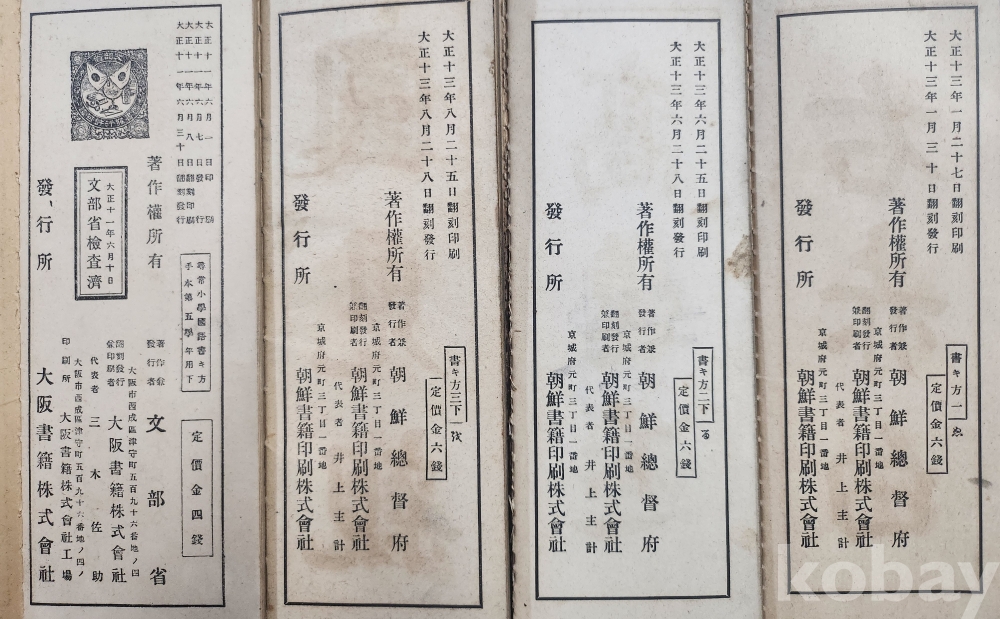 大正十三年一月二十七日翻刻印刷
大正十三年一月三十日翻刻發行
著作權所有
發行所
書キ方一 ゑ
定價金六錢
著作兼
發行者
朝鮮總督府
京城府元町三丁目一番地
翻刻發行
兼印刷者
朝鮮書籍印刷株式會社
代表者 井上主計
京城府元町三丁目一番地
朝鮮書籍印刷株式會社
大正十三年六月二十五日翻刻印刷
大正十三年六月二十八日翻刻發行
著作權所有
發行所
書キ方二下 る
定價金六錢
著作兼
發行者
朝鮮總督府
京城府元町三丁目一番地
翻刻發行
兼印刷者
朝鮮書籍印刷株式會社
代表者 井上主計
京城府元町三丁目一番地
朝鮮書籍印刷株式會社
大正十三年八月二十五日翻刻印刷
大正十三年八月二十八日翻刻發行
著作權所有
發行所
書キ方三下
定價金六錢
著作兼
發行者
朝鮮總督府
京城府元町三丁目一番地
翻刻發行
兼印刷者
朝鮮書籍印刷株式會社
代表者 井上主計
京城府元町三丁目一番地
朝鮮書籍印刷株式會社
大正十一年六月一日印刷
大正十一年六月七日發行
大正十一年六月八日翻刻印刷
大正十一年六月三十日翻刻發行
著作權所有
大正十一年六月十日
文部省檢査濟
發行所
尋常小學國語書キ方
手本第五學年用下
定價金四錢
著作兼
發行者
文部省
大阪市西成區津守町五百九十六番地ノ四
翻刻發行
兼印刷者
大阪書籍株式會社
代表者 三木佐助
大阪市西成區津守町五百九十六番地ノ四ノ
印刷所 大阪書籍株式會社工場
大阪書籍株式會社
kobay